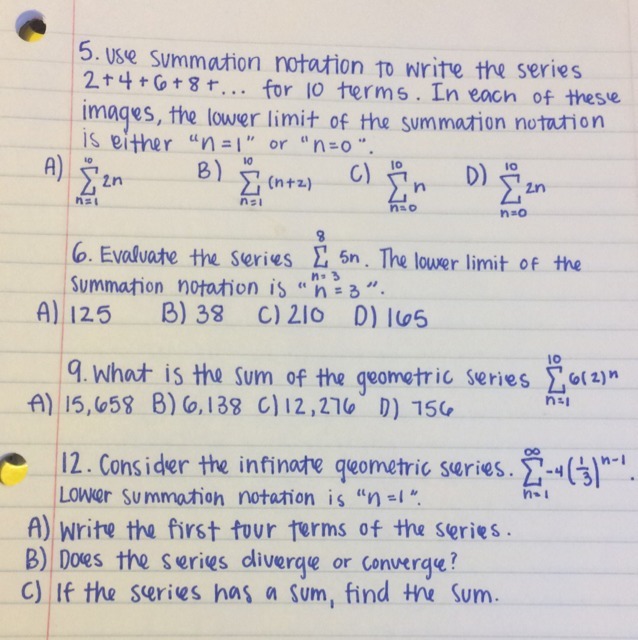 5. Use summation notation to write the series
2+4+6+8+... for 10 terms. In each of these
images, the lower limit of the summation notation
is either "n=1" or "n=0".
A) 10 Σ n=1 2n B) 10 Σ n=1 (n+2) C) 10 Σ n=0 n D) 10 Σ n=0 2n
6. Evaluate the series 8 Σ n=3 5n. The lower limit of the
summation notation is "n=3".
A) 125 B) 38 C) 210 D) 165
9. What is the sum of the geometric series 10 Σ n=1 6(2)ⁿ
A) 15,658 B) 6,138 C) 12,276 D) 756
12. Consider the infinate geometric series. ∞ Σ n=1 -4(1/3)ⁿ⁻¹.
Lower summation notation is "n=1".
A) Write the first four terms of the series.
B) Does the series diverge or converge?
C) If the series has a sum, find the sum.